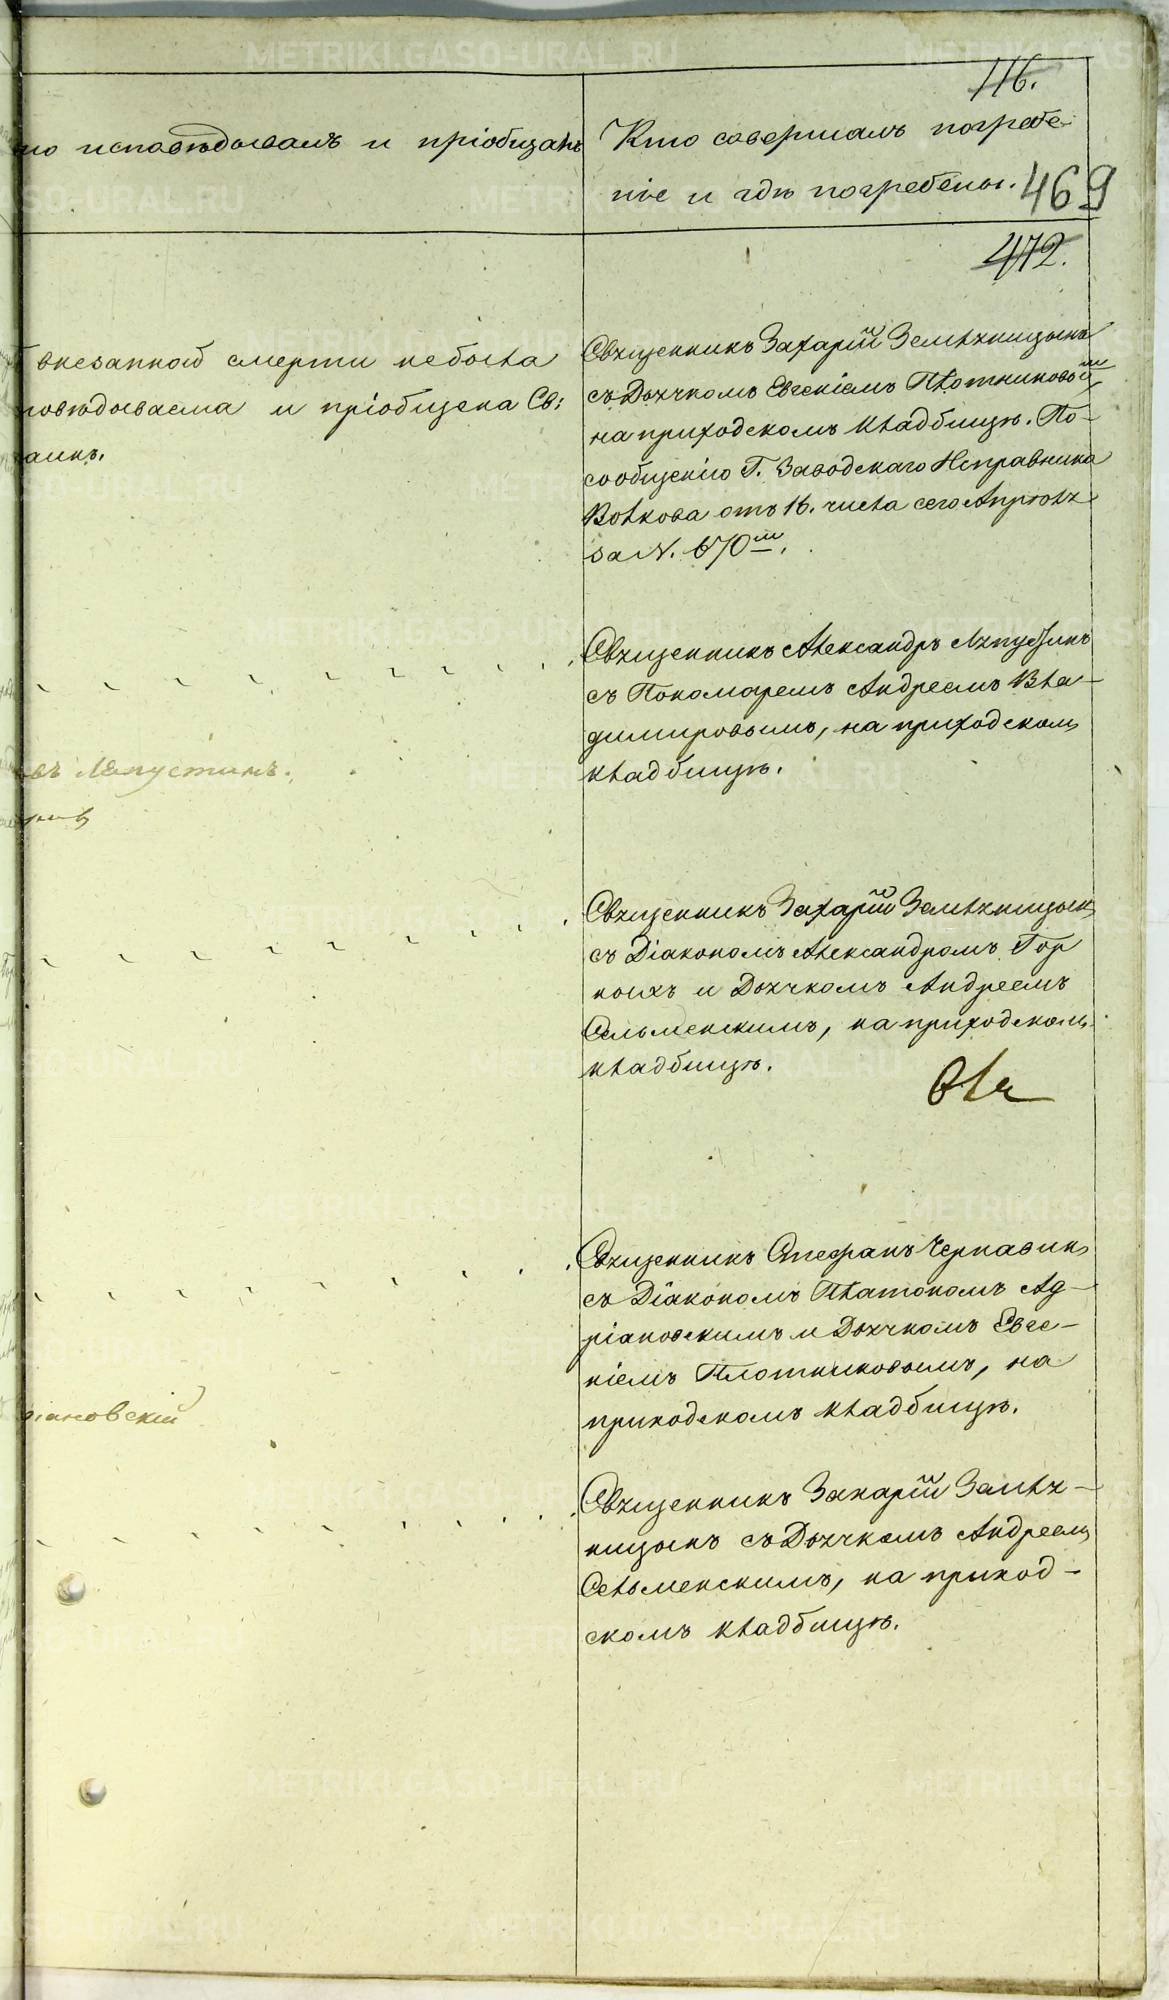 116.
исповѣдывалъ и пріобщалъ
Кто совершалъ погребе-
ніе и гдѣ погребены.
469
472.
внезапной смерти небыла
повѣдываема и пріобщена Св:
Священникъ Захарій Земляницынъ
съ Дьячкомъ Евгеніемъ Плотниковымъ
на приходскомъ кладбищѣ. По-
сообщенію Г. Заводскаго Исправника
Волкова отъ 16. числа сего Апрѣля
за N. 670м.
Священникъ Александръ Ляпустинъ
съ Пономаремъ Андреемъ Вла-
димировымъ, на приходскомъ
кладбищѣ.
въ Ляпустинъ.
Священникъ Захарій Земляницынъ
съ Діакономъ Александромъ Гор
ныхъ и Дьячкомъ Андреемъ
Сельменскимъ, на приходскомъ
кладбищѣ.
Священникъ Стефанъ Чернавинъ
съ Діакономъ Платономъ Ад-
ріановскимъ и Дьячкомъ Евге-
ніемъ Плотниковымъ, на
приходскомъ кладбищѣ.
ріановскій
Священникъ Захарій Земля-
ницынъ съ Дьячкомъ Андреемъ
Сельменскимъ, на приход-
скомъ кладбищѣ.